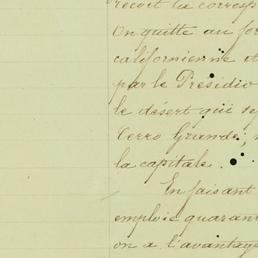 reçoit la corresp
On quitte au for
californienne et
par le Presidio
le désert qui se
Cerro Grande,
la capitale.
En faisant
emploie quaran
on a l'avantage